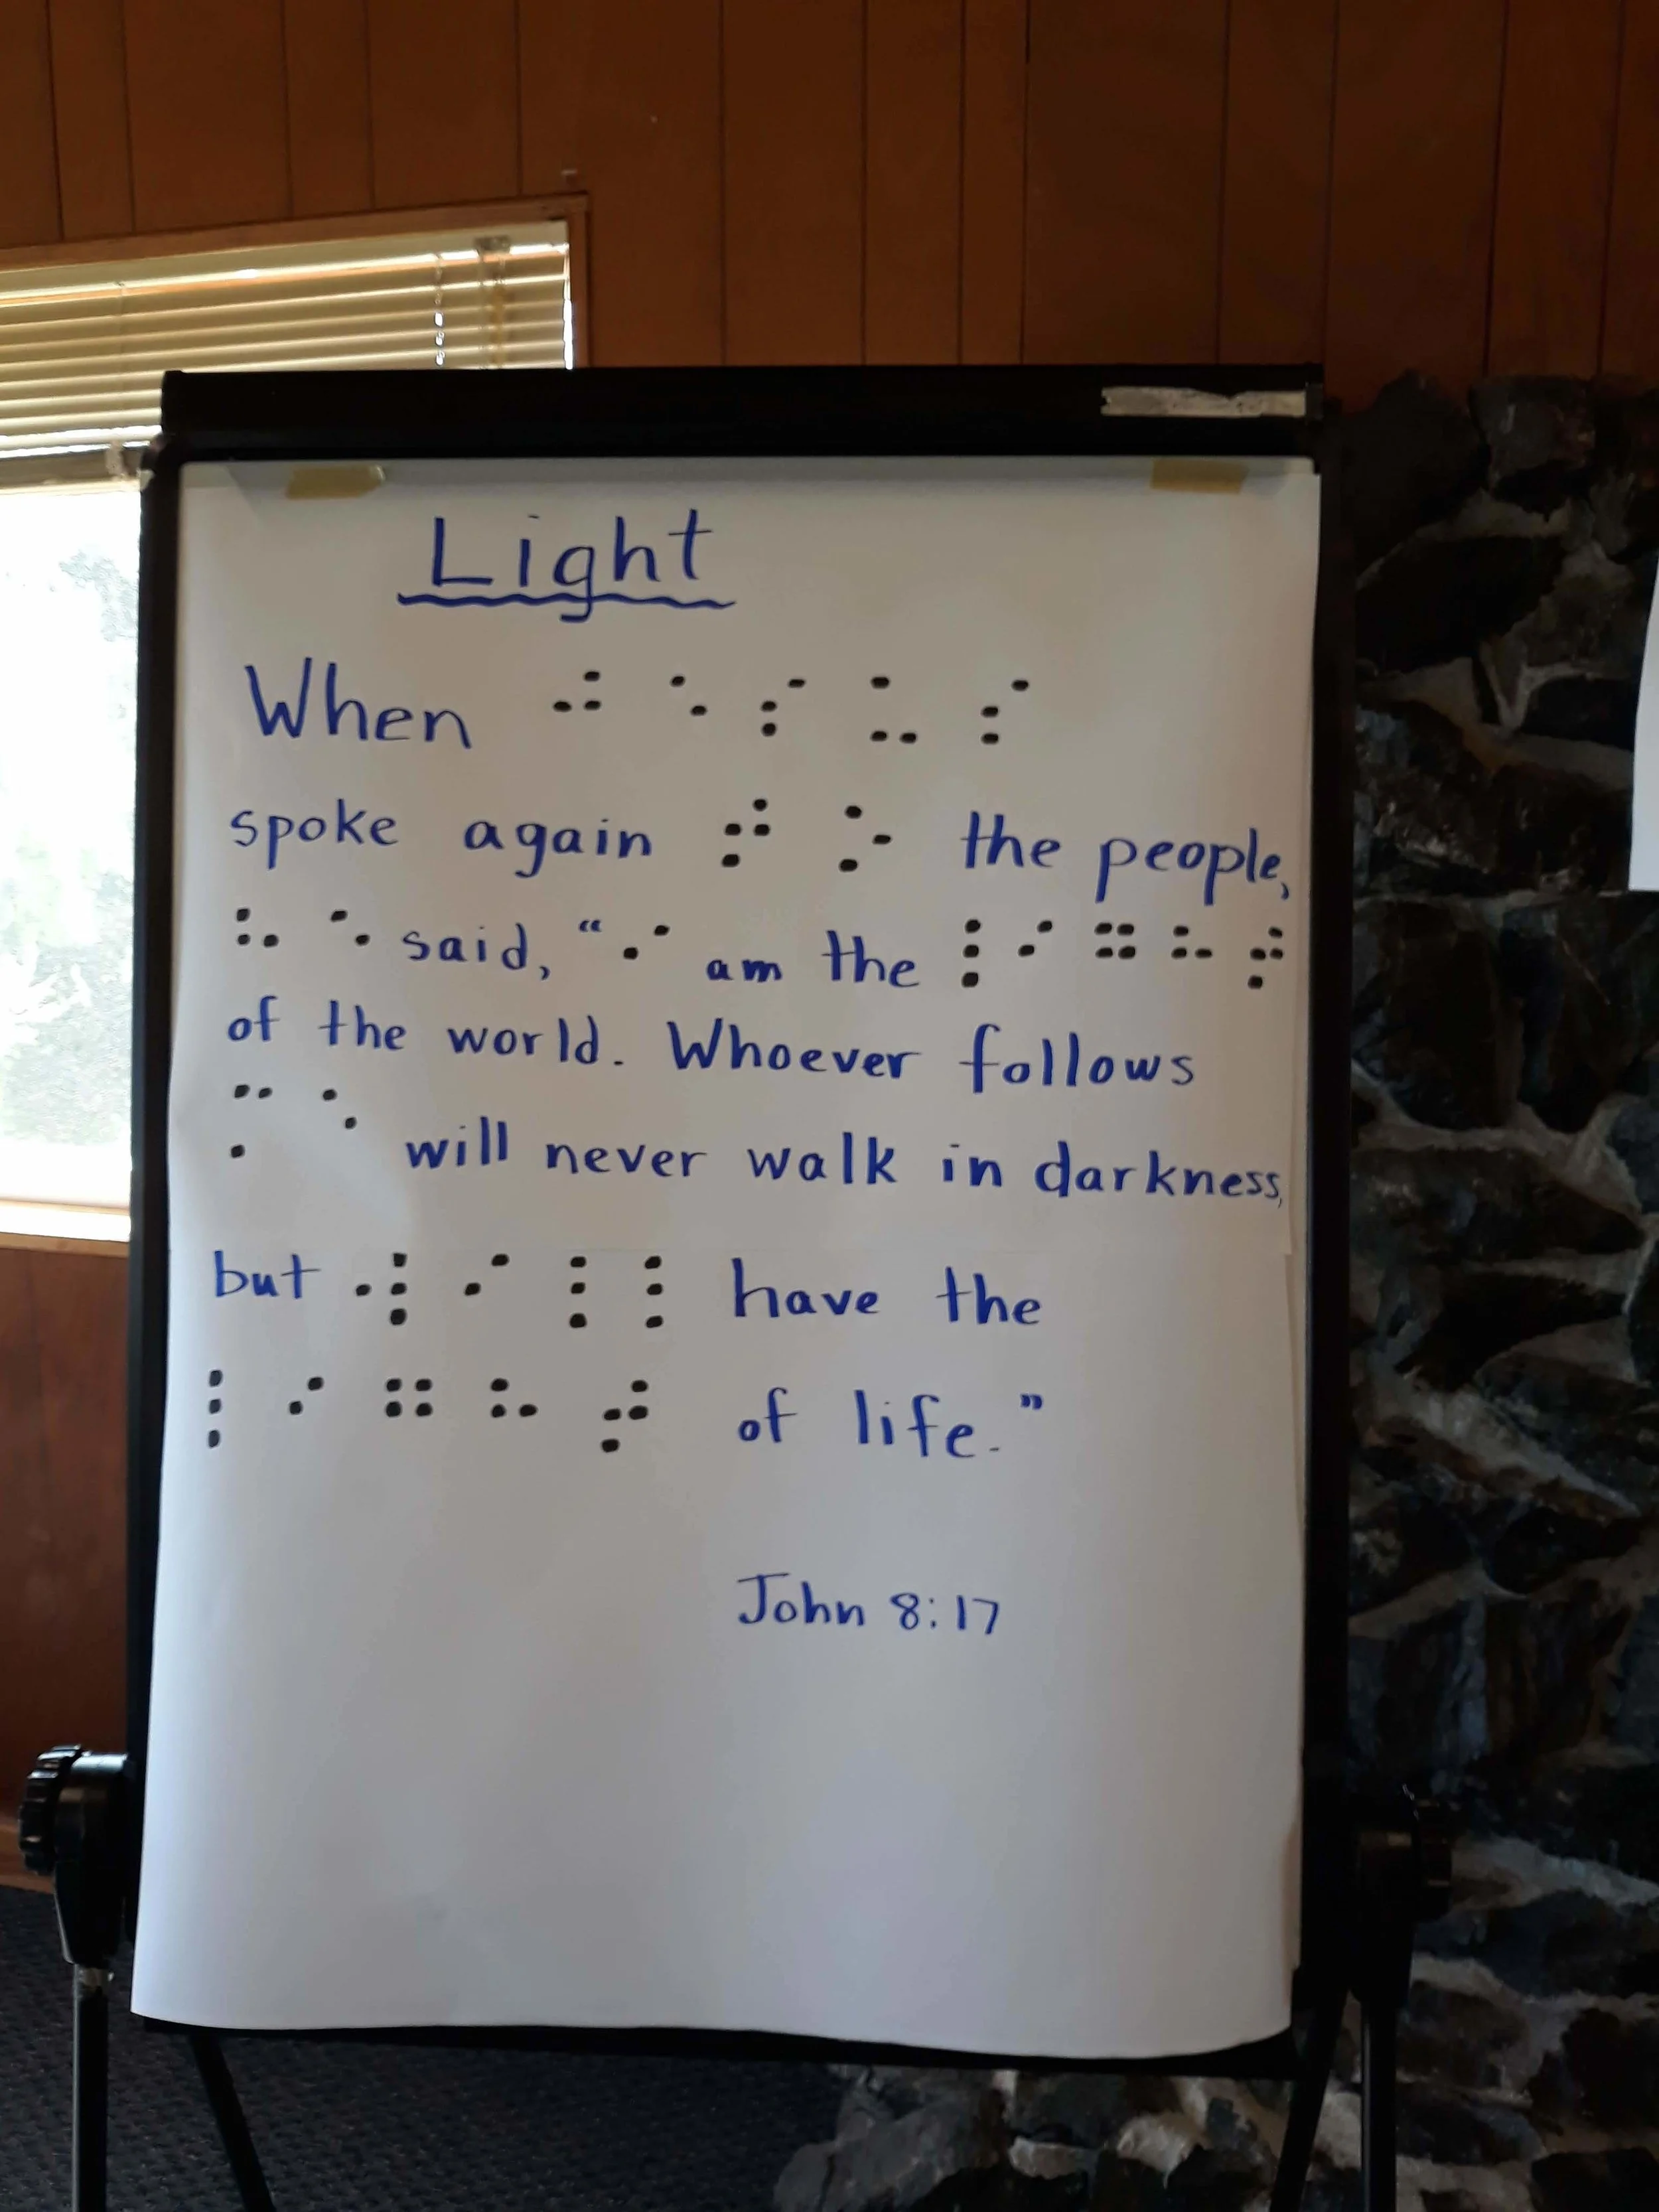 Light
When ⠚⠑⠎⠥⠎
spoke again ⠞⠕ the people,
⠓⠑ said, “⠊ am the ⠇⠊⠛⠓⠞
of the world. Whoever follows
⠍⠑ will never walk in darkness,
but ⠺⠊⠇⠇ have the
⠇⠊⠛⠓⠞ of life.”
John 8:17